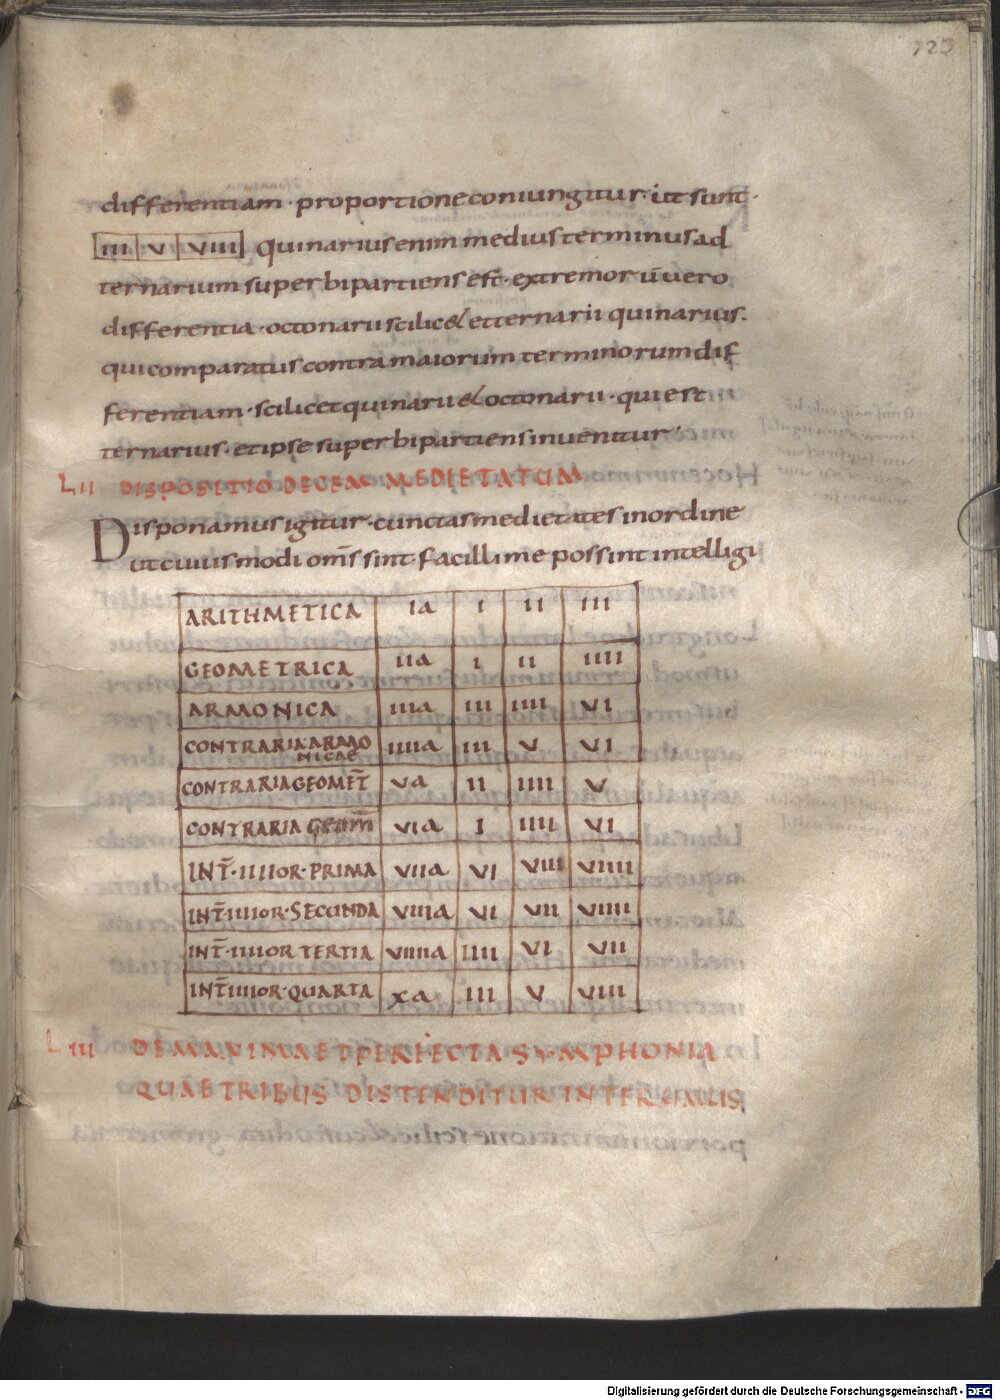 125
differentiam · proportione coniungitur · ut sunt ·
III V VIII quinarius enim medius terminus ad
ternarium superbipartiens est · extremorū vero
differentia · octonarii scilic& et ternarii quinarius ·
qui comparatus contra maiorum terminorum dif
ferentiam · scilicet quinarii & octonarii · qui est
ternarius · et ipse superbipartiens invenitur ·
LII DISPOSITIO DECEM MEDIETATUM
Disponamus igitur · cunctas medietates in ordine
ut cuius modi om̄s sint · facillime possint intelligi
ARITHMETICA Ia I II III
GEOMETRICA IIa I II IIII
ARMONICA IIIa III IIII VI
CONTRARIA ARMO
NICAE IIIIa III V VI
CONTRARIA GEOMET̄ Va II IIII V
CONTRARIA Geom̄ VIa I IIII VI
INT̄ · IIIIOR · PRIMA VIIa VI VIII VIIII
INT̄ · IIIIOR · SECUNDA VIIIa VI VII VIIII
INT̄ · IIIIOR TERTIA VIIIIa IIII VI VII
INT̄ IIIIOR · QUARTA Xa III V VIII
LIII DE MAXIMA ET PERFECTA SYMPHONIA
QUAE TRIBUS DISTENDITUR INTERVALLIS
Digitalisierung gefördert durch die Deutsche Forschungsgemeinschaft - DFG